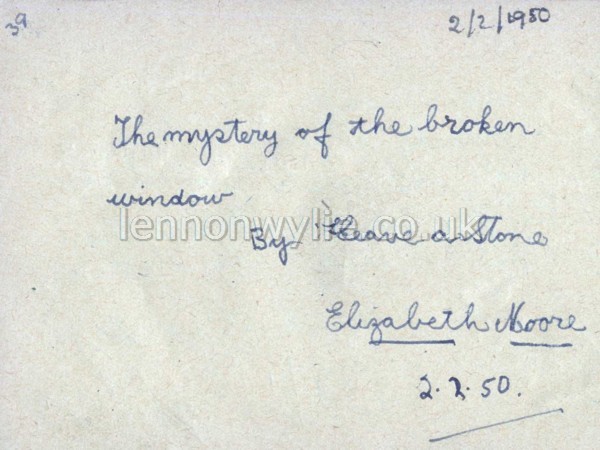 39
2/2/1950
The mystery of the broken
window
lennonwylie.co.uk
By- "Heave a Stone
Elizabeth Moore
2.2.50.